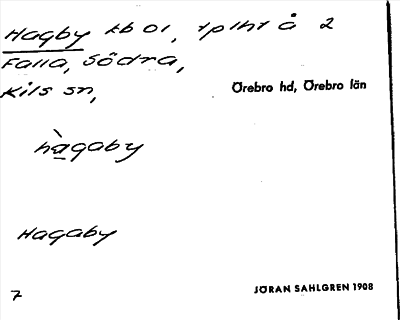 Hagby kb 01, tplht å 2
Falla, Södra,
Kils sn,
Örebro hd, Örebro län
hàgaby
Hagaby
7
JÖRAN SAHLGREN 1908